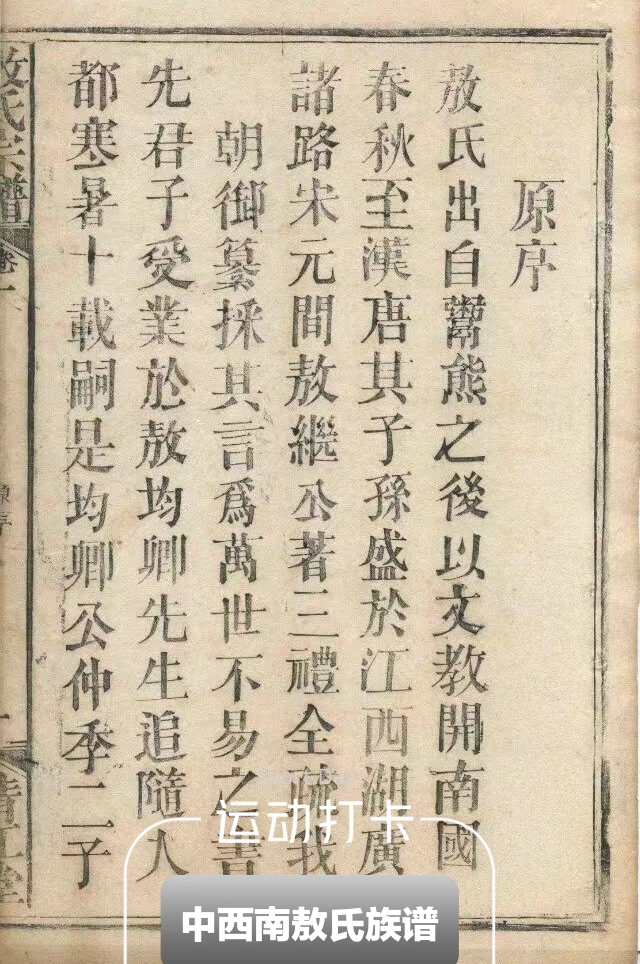 原序
敖氏出自鬻熊之後以文教開南國
春秋至漢唐其子孫盛於江西湖廣
諸路宋元間敖繼公著三禮全疏我
朝御纂採其言爲萬世不易之書
先君子受業於敖均卿先生追隨人
都寒暑十載嗣是均卿公仲季二子
敖氏宗譜
卷一
原序
一
运动打卡
中西南敖氏族谱